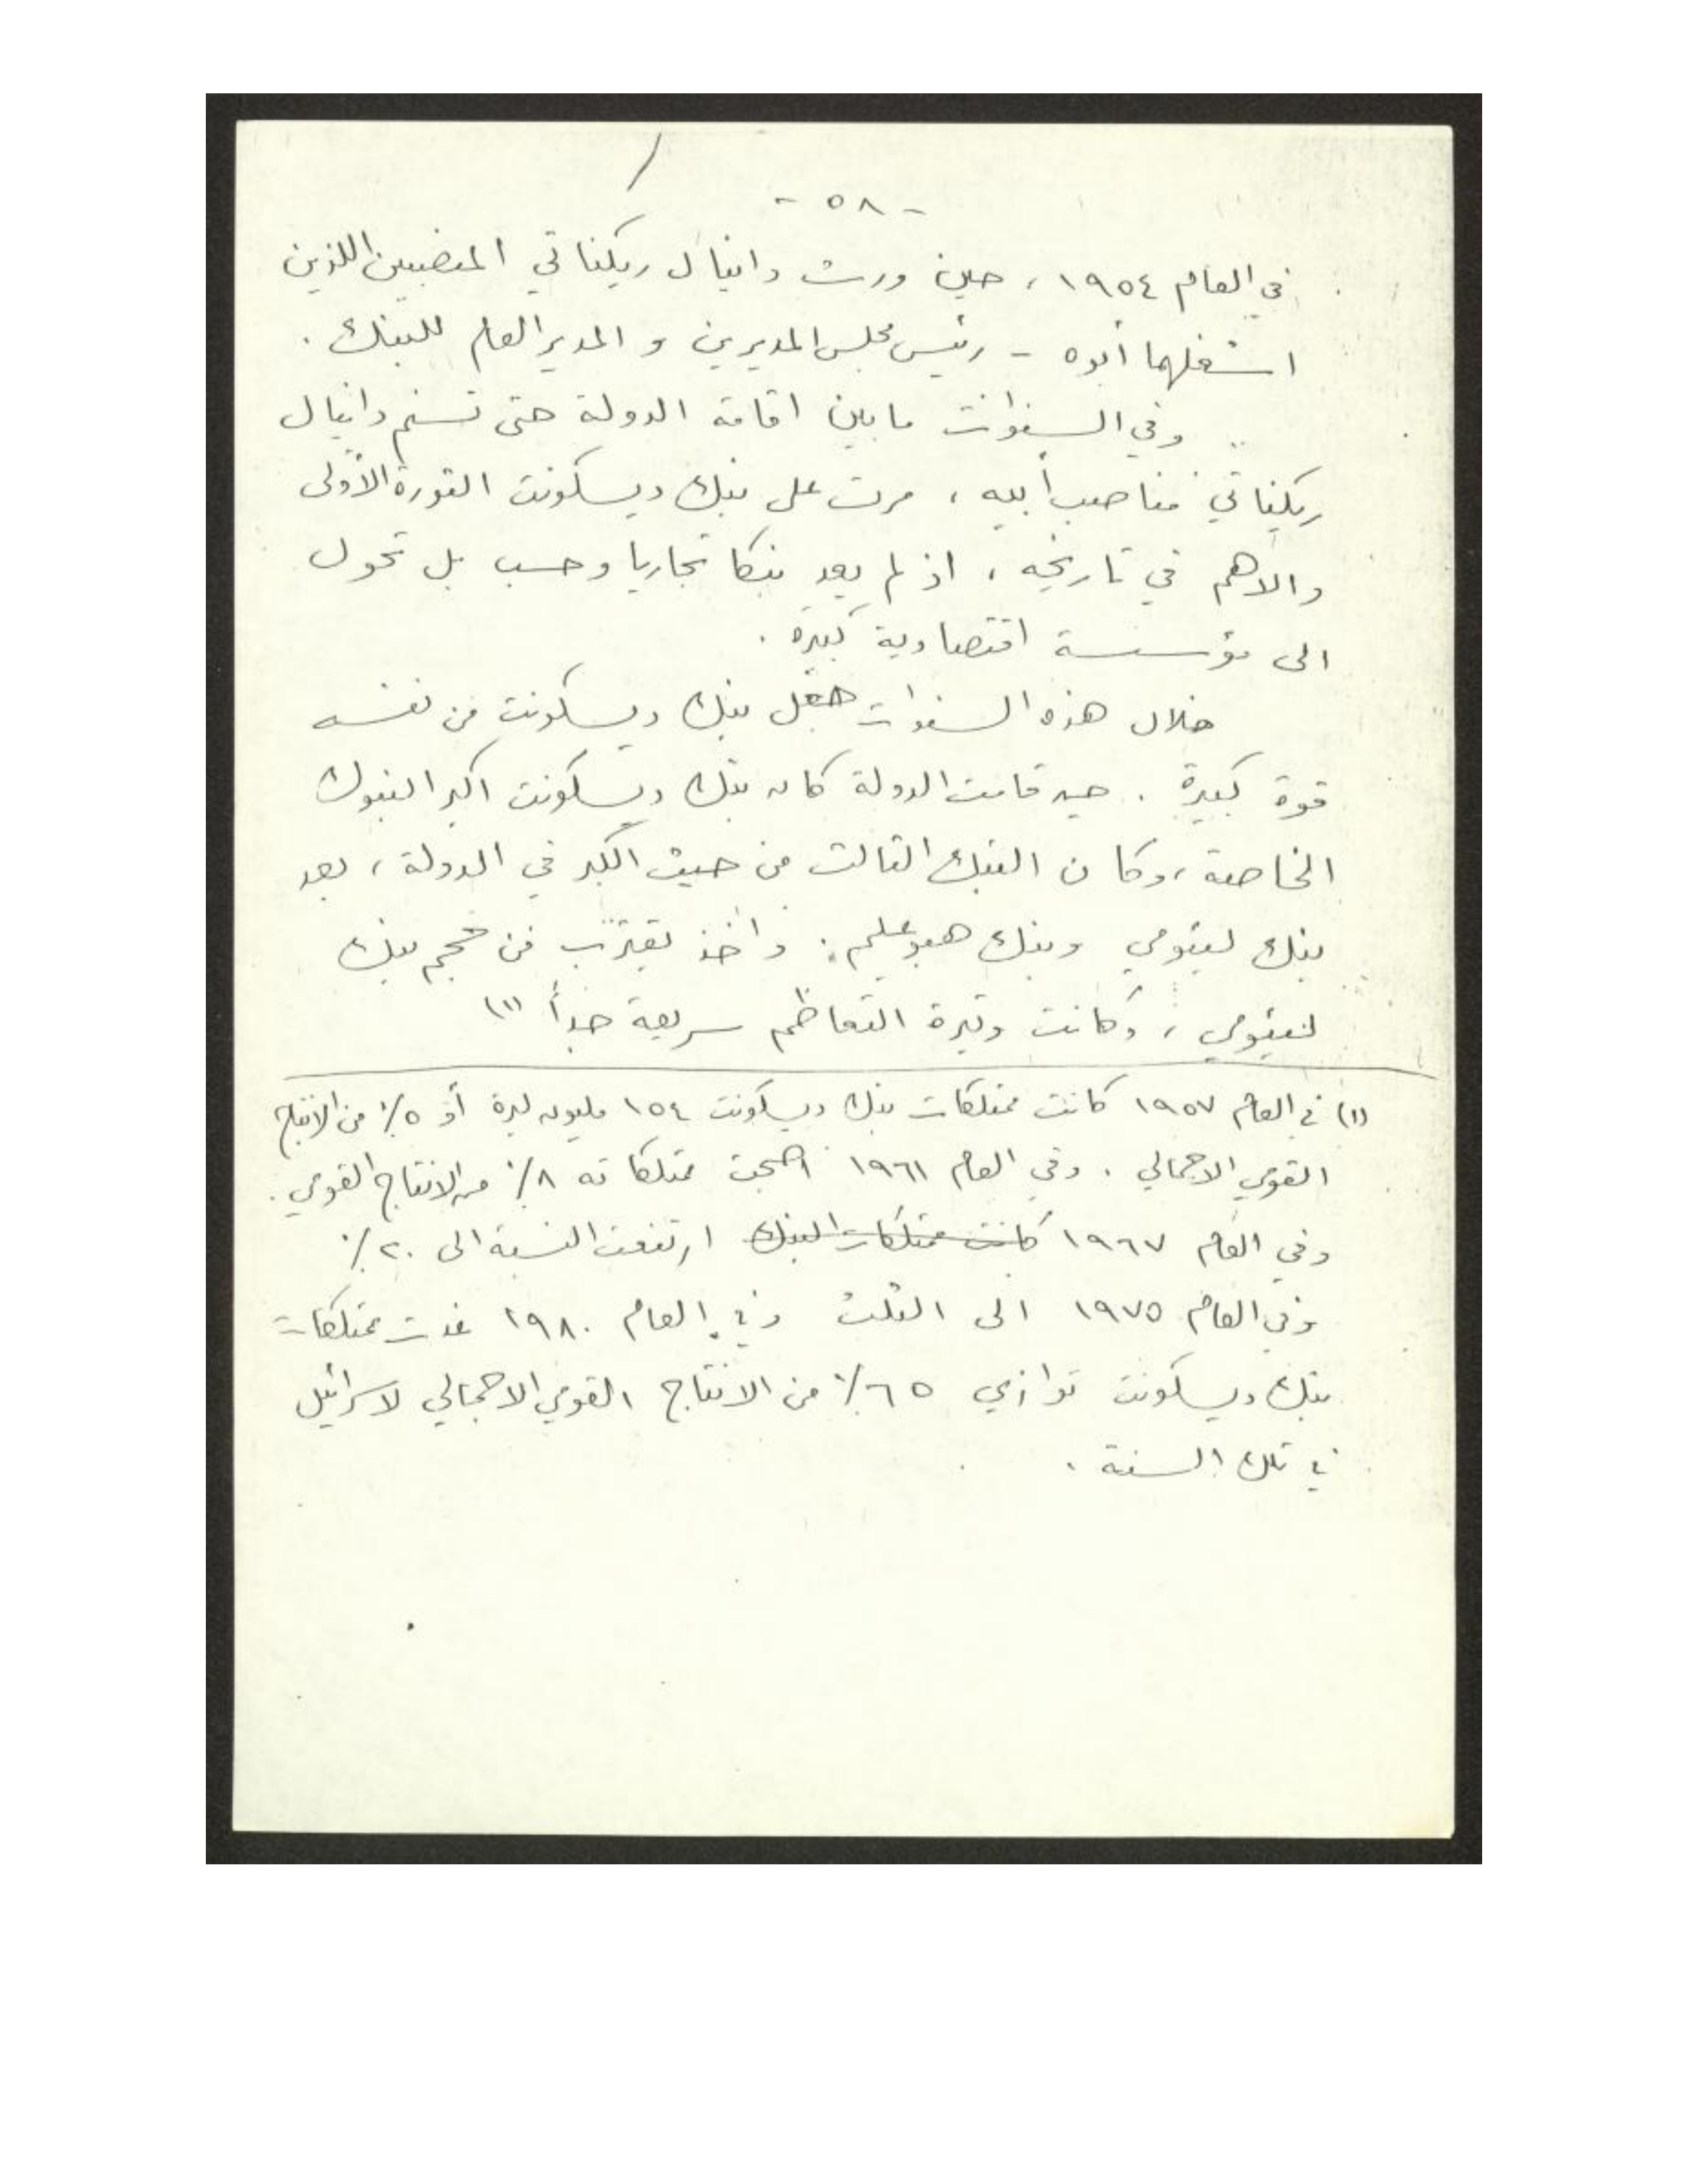 - ٥٨ -
في العام ١٩٥٤، حين ورث دانيال ريكناتي المنصبين اللذين
اشغلهما أبوه - رئيس مجلس المديرين و المدير العام للبنك .
وفي السنوات ما بين اقامة الدولة حتى تسنم دانيال
ريكناتي مناصب أبيه ، مرت على بنك ديسكونت الثورة الأولى
والاهم في تاريخه ، اذ لم يعد بنكا تجاريا وحسب بل تحول
الى مؤسسة اقتصادية كبيرة .
خلال هذه السنوات جعل بنك ديسكونت من نفسه
قوة كبيرة . حين قامت الدولة كان بنك ديسكونت اكبر البنوك
الخاصة ، وكان البنك الثالث من حيث الكبر في الدولة ، بعد
بنك ليئومي وبنك هبوعليم . واخذ يقترب من حجم بنك
ليئومي ، وكانت وتيرة التعاظم سريعة جداً (١)
(١) في العام ١٩٥٧ كانت ممتلكات بنك ديسكونت ١٥٤ مليون ليرة أو ٥٪ من الانتاج
القومي الاجمالي . وفي العام ١٩٦١ اصبحت ممتلكاته ٨٪ من الانتاج القومي .
وفي العام ١٩٦٧ كانت ممتلكات البنك ارتفعت النسبة الى ٢٠٪
وفي العام ١٩٧٥ الى الثلث وفي العام ١٩٨٠ غدت ممتلكات
بنك ديسكونت توازي ٦٥٪ من الانتاج القومي الاجمالي لاسرائيل
في تلك السنة .